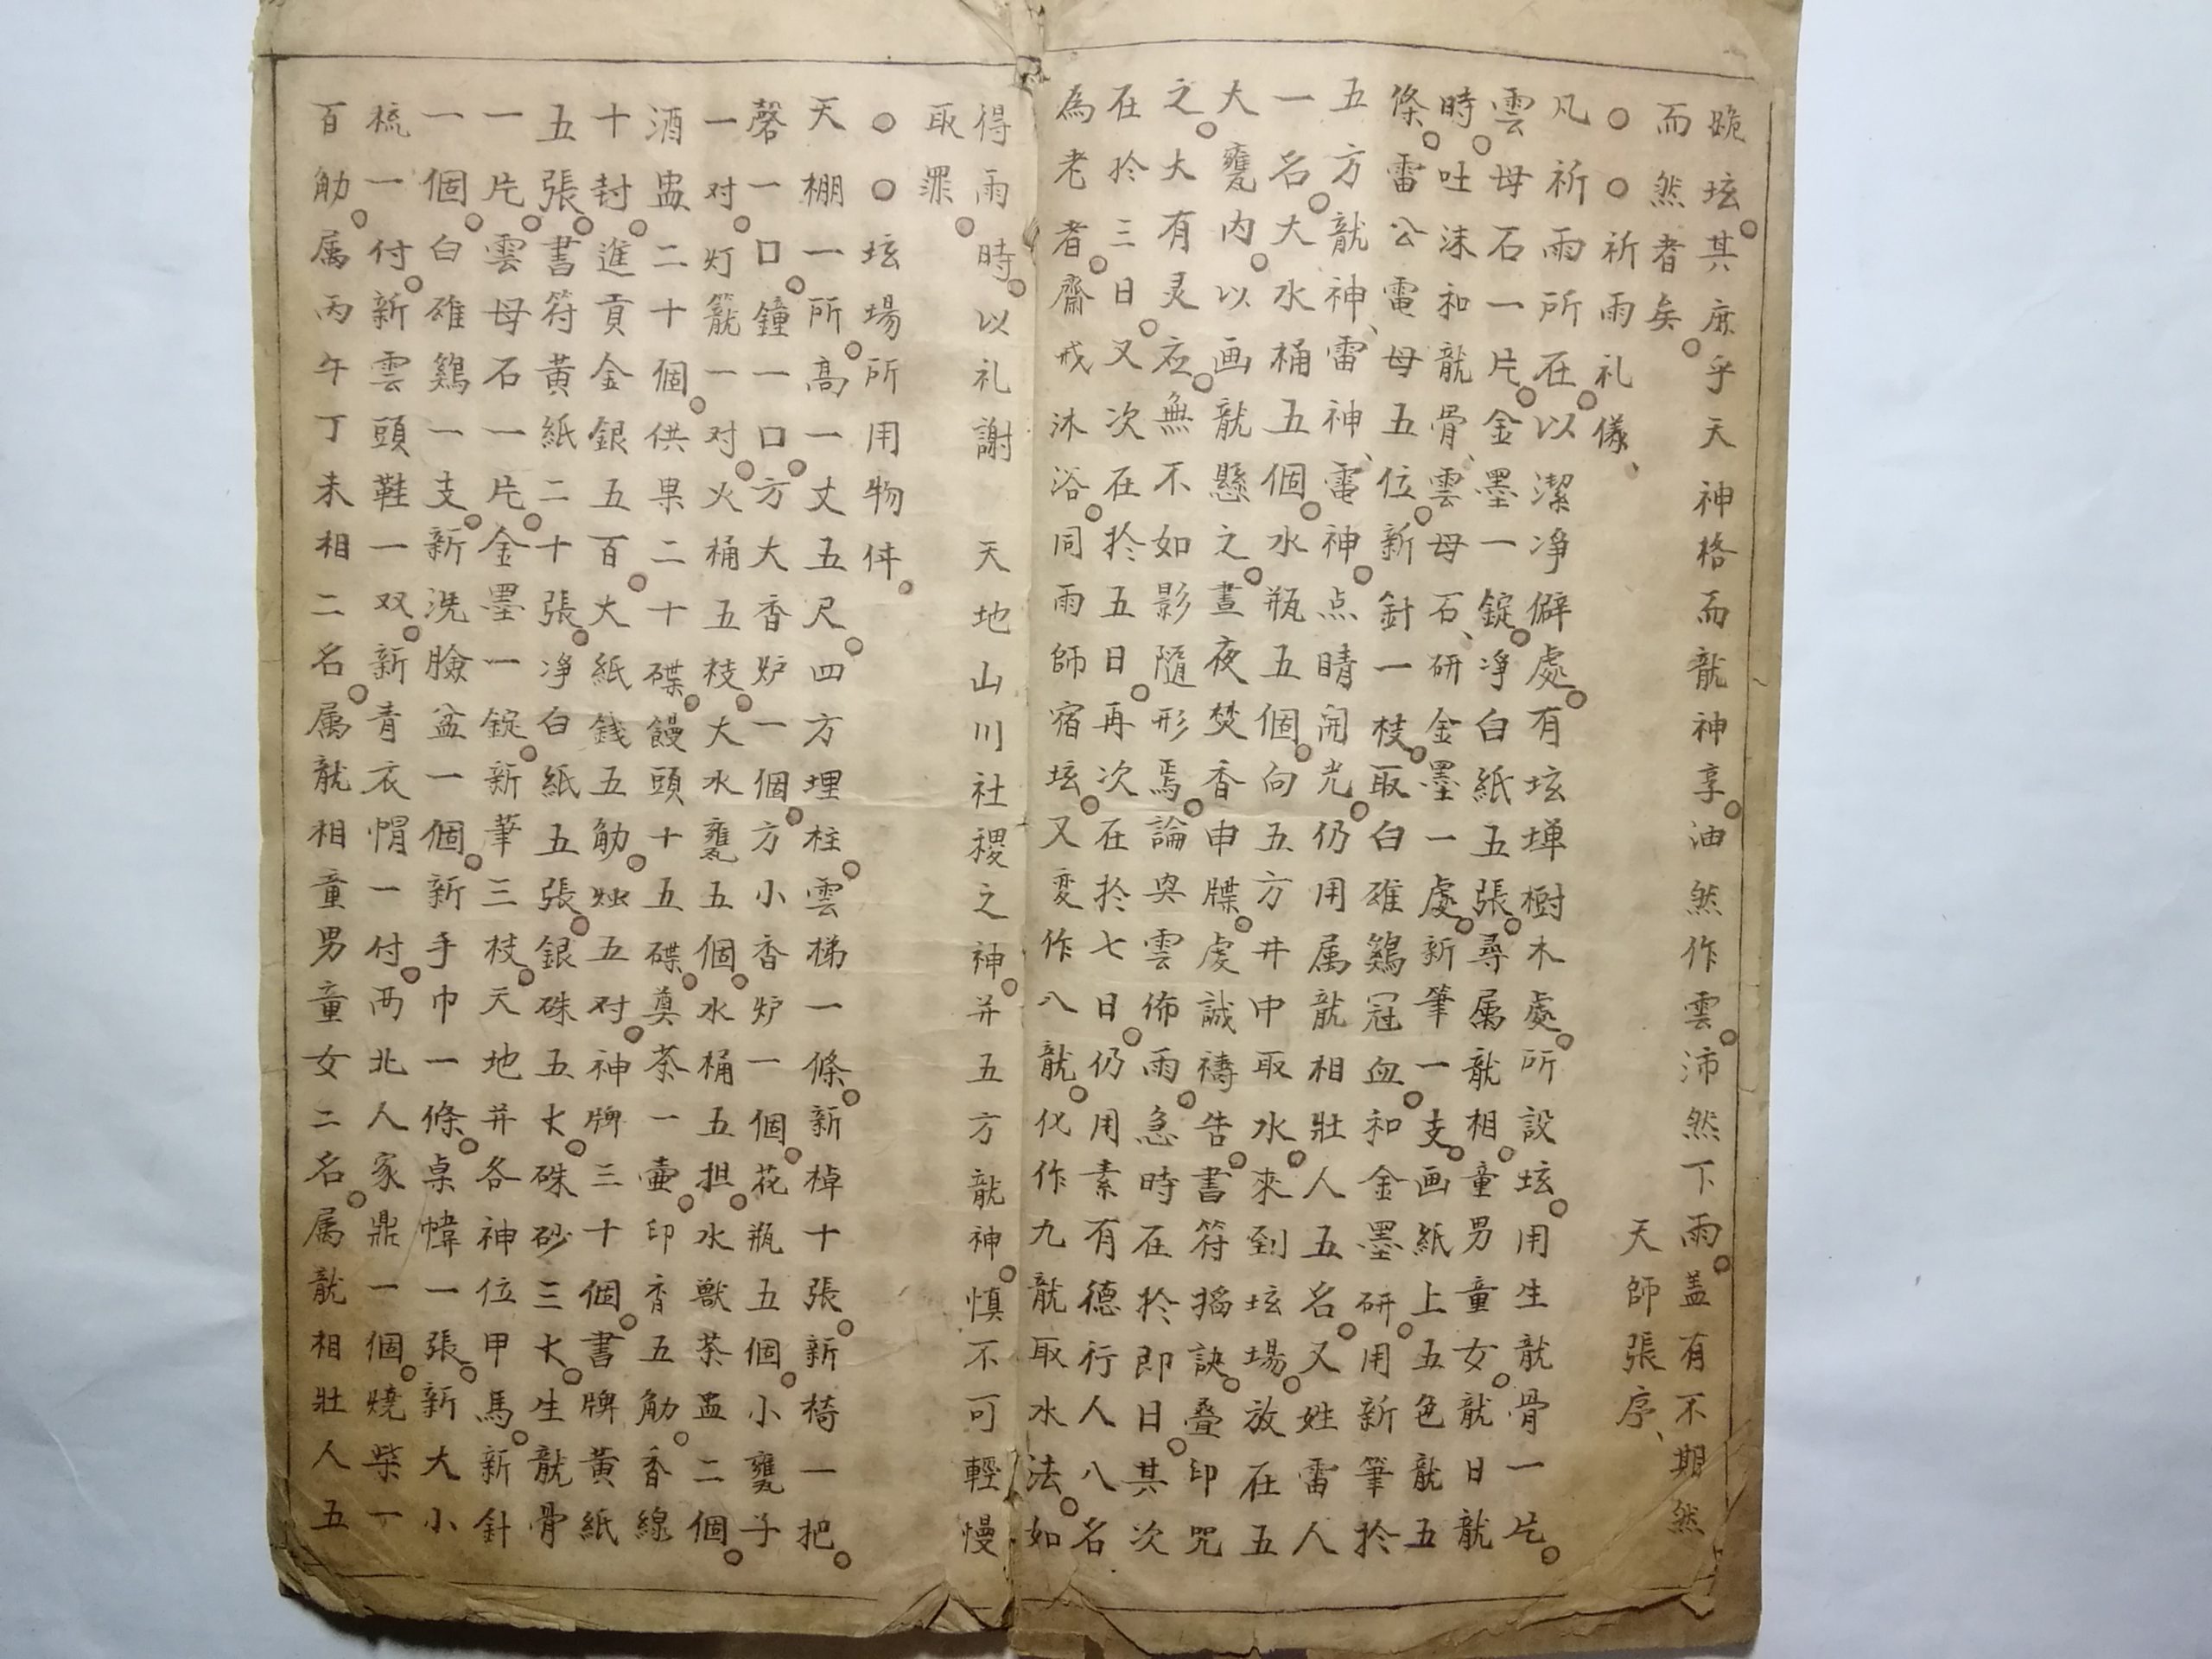 跪坛。其庶乎天神格而龍神享。油然作雲。沛然下雨。盖有不期然
而然者矣。
天師張序、
○○祈雨礼儀、
凡祈雨所在。以潔凈僻處。有坛墠樹木處。所設坛。用生龍骨一片。
雲母石一片。金墨一錠。凈白紙五張。尋属龍相。童男童女。龍日龍
時。吐沫和龍骨、雲母石、研金墨一處。新筆一支。画紙上五色龍五
條。雷公電母五位。新針一枝。取白雄鷄冠血。和金墨研。用新筆於
五方龍神、雷神、電神。点睛開光。仍用属龍相壯人五名。又姓雷人
一名。大水桶五個。水瓶五個。向五方井中取水。來到坛場。放在五
大甕内。以画龍懸之。晝夜焚香申牒。虔誠禱告。書符掐訣。叠印咒
之。大有灵应。無不如影隨形焉。論與雲佈雨。急時在於即日。其次
在於三日。又次在於五日。再次在於七日。仍用素有德行人八名
為老者。齋戒沐浴。同雨師宿坛。又变作八龍。化作九龍取水法。如
得雨時。以礼謝 天地山川社稷之神。并五方龍神。慎不可輕慢
取罪。
○○坛場所用物件。
天棚一所。高一丈五尺。四方埋柱。雲梯一條。新棹十張。新椅一把。
磬一口。鐘一口。方大香炉一個。方小香炉一個。花瓶五個。小甕子
一对。灯籠一对。火桶五枝。大水甕五個。水桶五担。水獸茶盅二個。
酒盅二十個。供果二十碟。饅頭十五碟。奠茶一壷。印香五觔。香線
十封。進貢金銀五百。大紙錢五觔。烛五对。神牌三十個。書牌黄紙
五張。書符黄紙二十張。凈白紙五張。銀硃五大。硃砂三大。生龍骨
一片。雲母石一片。金墨一錠。新筆三枝。天地并各神位甲馬。新針
一個。白雄鷄一支。新洗臉盆一個。新手巾一條。桌幃一張。新大小
梳一付。新雲頭鞋一双。新青衣帽一付。两北人家鼎一個。燒柴一
百觔。属丙午丁未相二名。属龍相童男童女二名。属龍相壯人五